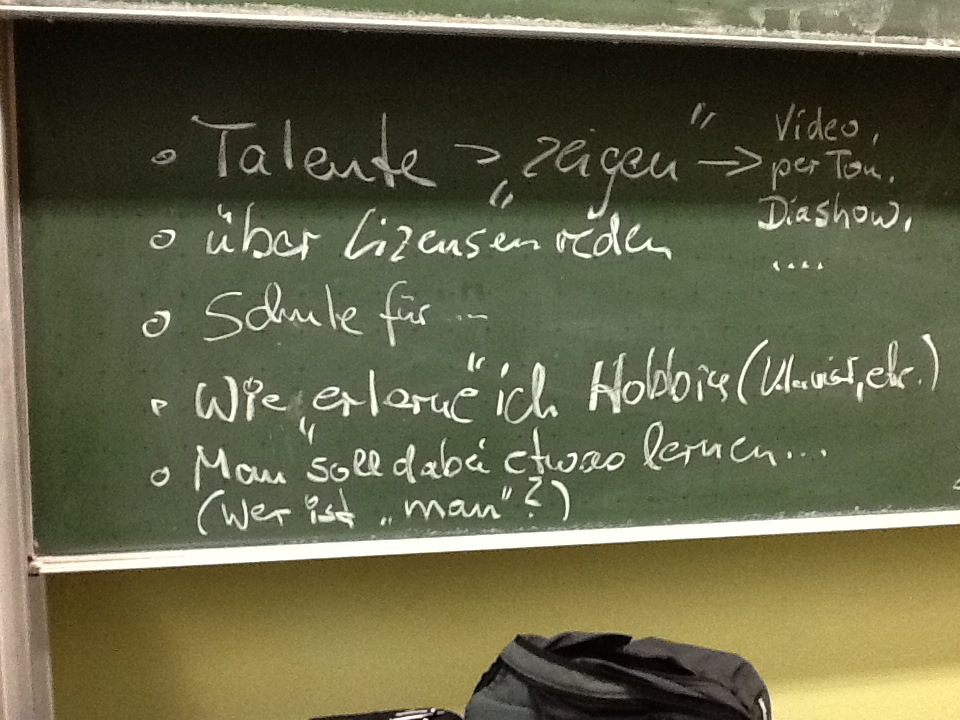 o Talente > „zeigen“ → Video,
per Ton,
Diashow,
....
o über Lizensen reden
o Schule für ...
• Wie „erlerne“ ich Hobbies (Klavier, etc.)
o Man soll dabei etwas lernen...
(Wer ist „man“?)